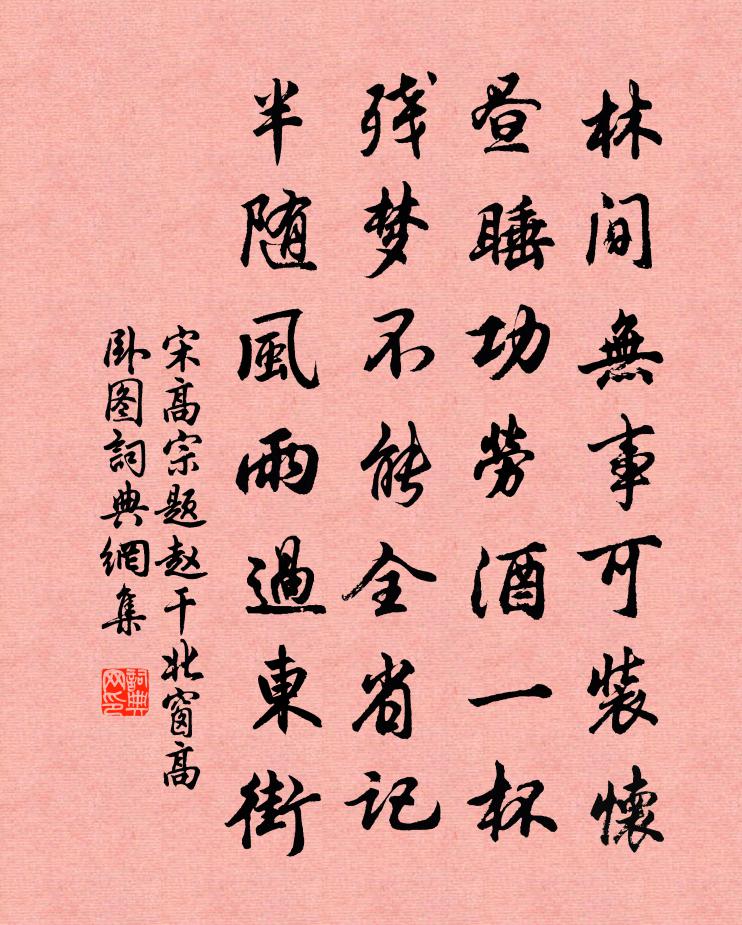 林间無事可裝懷
昼睡功勞酒一杯
残梦不能全省记
半随風雨過東街
宋高宗题赵干北窗高
卧图詞典網集
詞典网印